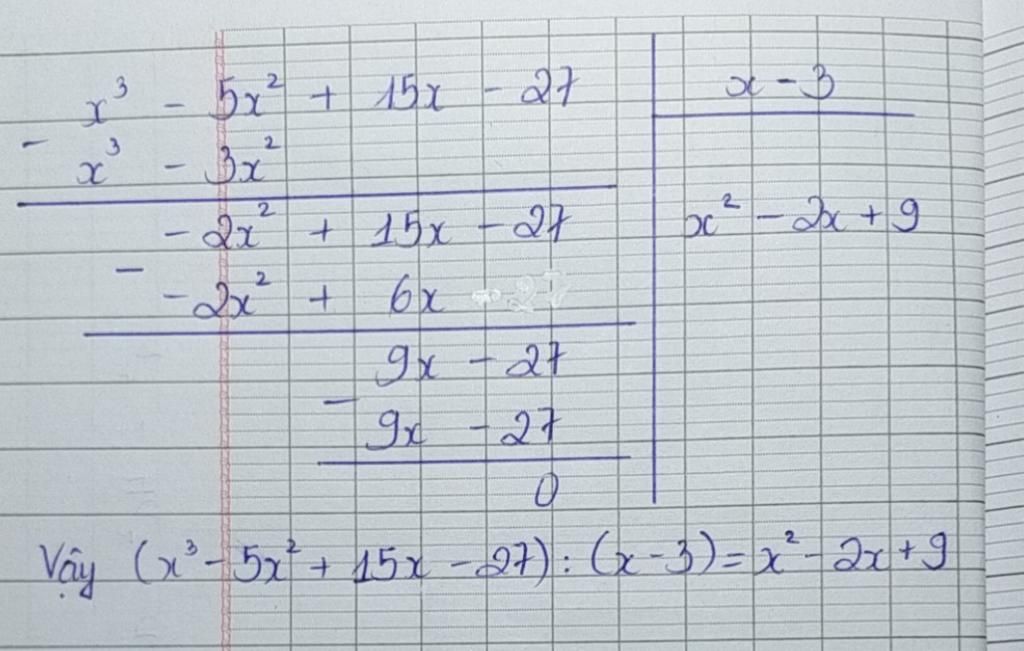 x³ - 5x² + 15x - 27 | x - 3
- x³ - 3x²
- 2x² + 15x - 27 | x² - 2x + 9
- - 2x² + 6x
9x - 27
- 9x - 27
0
Vậy (x³ - 5x² + 15x - 27) : (x - 3) = x² - 2x + 9